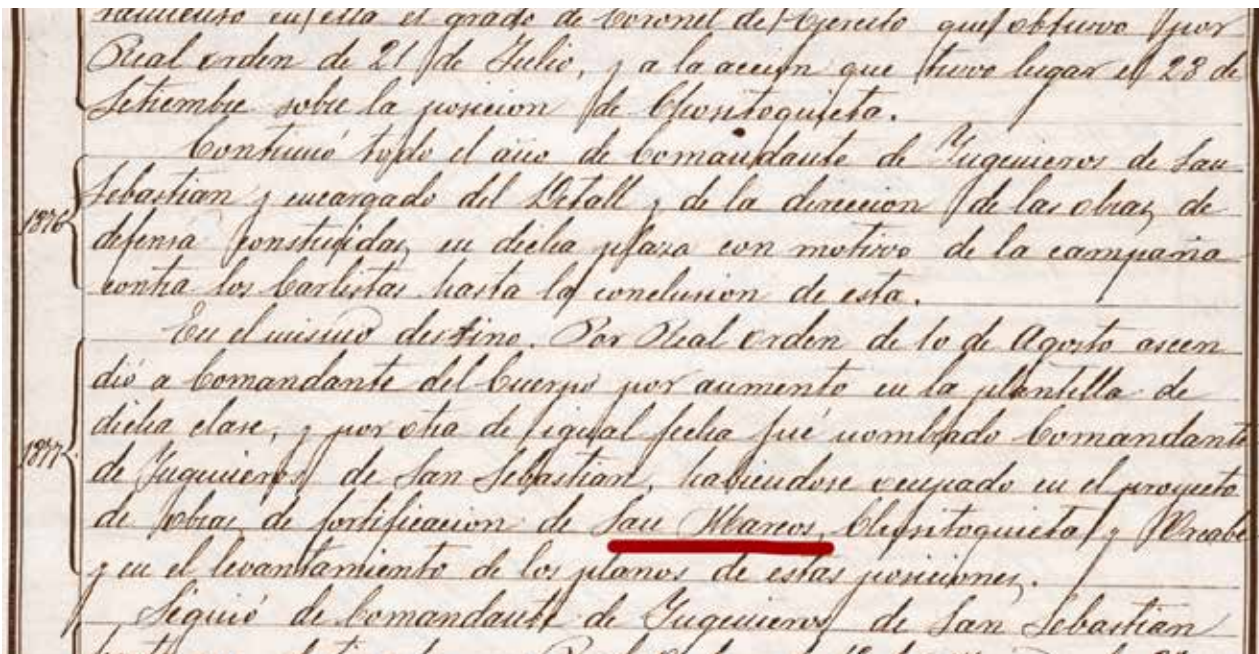 en ella el grado de Coronel de Ejercito que obtuvo por
Real orden de 21 de Julio, y a la accion que tuvo lugar el 28 de
Setiembre sobre la posicion de Choritoquieta.
Continuó todo el año de Comandante de Yngenieros de San
1876 Sebastian y encargado del Detall y de la direccion de las obras de
defensa construidas en dicha plaza con motivo de la campaña
contra los Carlistas hasta la conclusion de esta.
En el mismo destino. Por Real orden de 10 de Agosto ascen
dió a Comandante del Cuerpo por aumento en la plantilla de
1877 dicha clase, y por otra de igual fecha fué nombrado Comandante
de Yngenieros de San Sebastian, habiendose ocupado en el proyecto
de obras de fortificacion de San Marcos, Choritoquieta y
y en el levantamiento de los planos de estas posiciones.
Siguió de Comandante de Yngenieros de San Sebastian